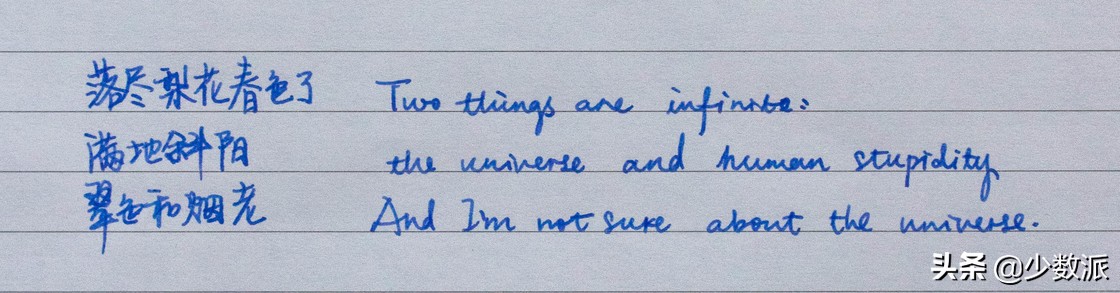 落尽梨花春色了
满地斜阳
翠色和烟老
Two things are infinite:
the universe and human stupidity
And I'm not sure about the universe.
头条 @少数派